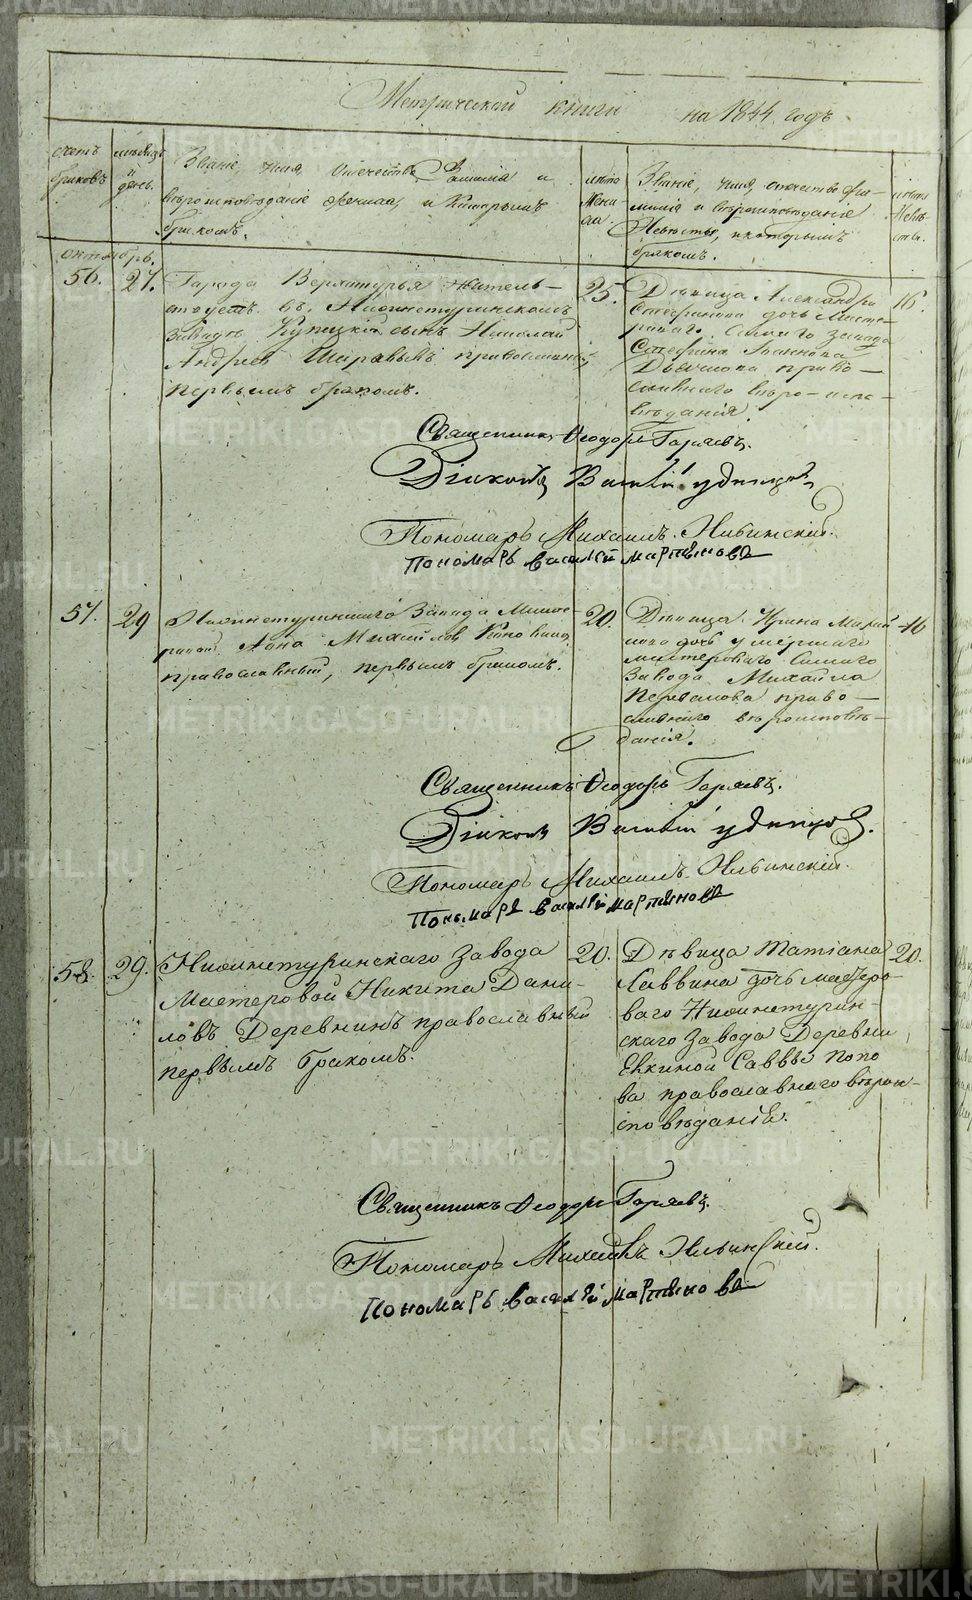 METRIKI.GASO-URAL.RU
Метрической книги на 1844 годъ
счетъ браковъ
мѣсяцъ и день.
Званіе, имя, отечество, Фамилія и
вѣроисповѣданіе жениха, и которымъ
бракомъ.
лѣта жени-
ха.
Званіе, имя, отечество фа-
милія и вѣроисповѣданіе
Невѣсты, и которымъ
бракомъ.
лѣта невѣ-
сты.
октябрь.
56. 27.
Города Верхотурья житель-
ствуетъ въ Нижнетуринскомъ
Заводѣ Купецкій сынъ Николай
Андреевъ православный,
первымъ бракомъ.
25.
Дѣвица Александра
Стефанова дочь Масте-
роваго Самаго завода
Стефана
православнаго вѣро-испо-
вѣданія.
16.
Священникъ Ѳеодоръ Гаряевъ.
Діаконъ Василій Удинцовъ
Пономарь Михаилъ Ильинскій.
Пономарь василей мартинова
57. 29
Нижнетуринскаго Завода Масте-
ровой Михайловъ
православный, первымъ бракомъ.
20.
Дѣвица Ирина Михай-
лова дочь умершаго
мастероваго Самаго
Завода Михайла
право-
славнаго вѣроисповѣ-
данія.
16
Священникъ Ѳеодоръ Гаряевъ.
Діаконъ Василій Удинцовъ.
Пономарь Михаилъ Ильинскій.
Пономарь василей мартинова
58. 29.
Нижнетуринскаго Завода
Мастеровой Никита Дани-
ловъ Деревнинъ православный
первымъ бракомъ.
20.
Дѣвица Татіана
Саввина дочь мастеро-
ваго Нижнетурин-
скаго Завода Деревни
Елкиной Саввы Попо
ва православнаго вѣрои-
сповѣданія.
20.
Священникъ Ѳеодоръ Гаряевъ.
Пономарь Михаилъ Ильинскій.
Пономарь василей мартинова